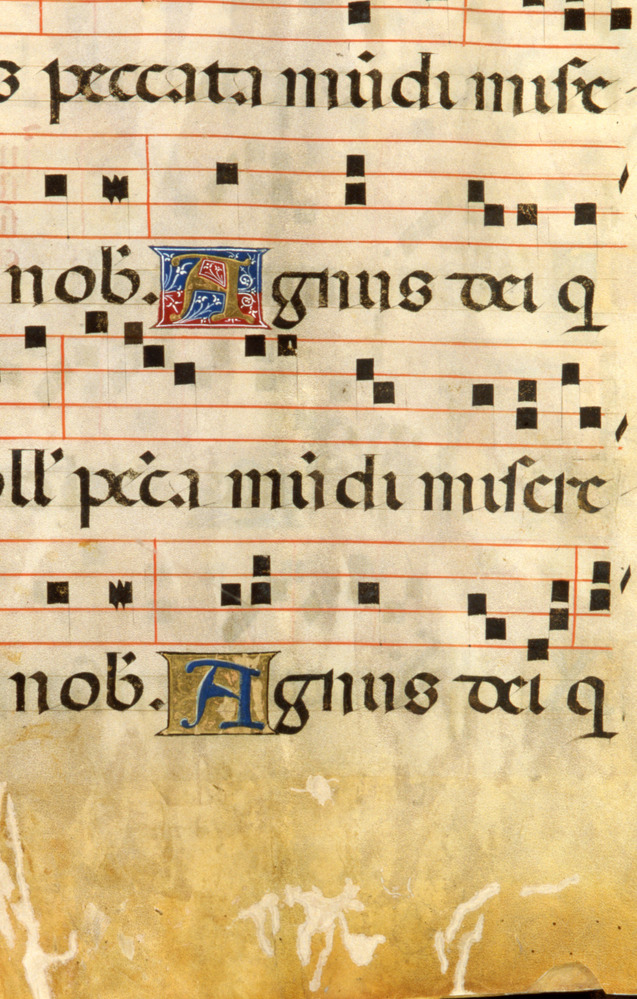 s peccata mũdi mise
nob̄. Agnus dei q
oll' pec̄a mũdi misere
nob̄. Agnus dei q